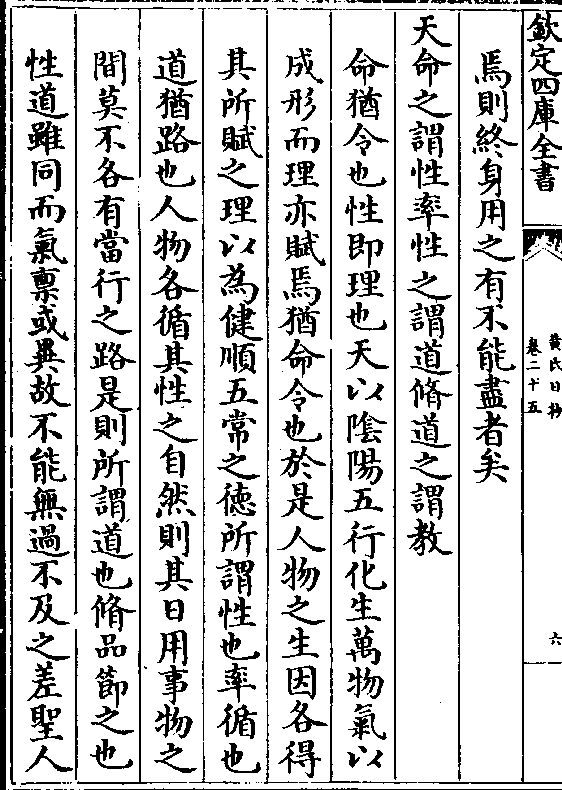 欽定四庫全書
黃氏日抄
卷二十五
六
焉則終身用之有不能盡者矣
天命之謂性率性之謂道脩道之謂教
命猶令也性即理也天以陰陽五行化生萬物氣以
成形而理亦賦焉猶命令也於是人物之生因各得
其所賦之理以為健順五常之徳所謂性也率循也
道猶路也人物各循其性之自然則其日用事物之
間莫不各有當行之路是則所謂道也脩品節之也
性道雖同而氣禀或異故不能無過不及之差聖人